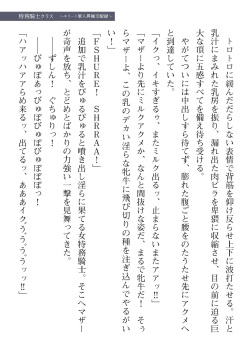 特務騎士クリス ～エリート軍人異種交配録～
トロトロに緩んだだらしない表情で背筋を仰け反らせ上下に波打たせる。汗と
乳汁にまみれた乳房を振り、漏れ出た肉ビラを卑猥に収縮させ、目の前に迫る巨
大な頂に五感すべてを備え待ち受ける。
やがてついには中出しすら待てず、膨れた腹ごと腰をのたうたせ先にアクメへ
と到達していた。
「イクっ、イキすぎるぅ、またミルク出るっ、止まらないまたアアッ!!」
「マザーより先にミルクアクメか、なんと間抜けな姿だ、まるで牝牛だ！ そぅ
らマザーよ、この乳のデカい淫らな牝牛に飛び切りの種を注ぎ込んでやるがい
い！」
「FSHURE！ SHRRAA！」
追加で乳汁をびゅるびゅると噴き出し淫らに果てる女特務騎士。そこへマザー
が奇声を放ち、とどめとばかりの力強い一撃を見舞ってきた。
ずしん！ ぐちゅりっ！
――びゅぼあっびゅぼびゅぼびゅぼぼっ！
「ハアッハアァらめ来るッ、出てるッ、ああああイクぅぅぅぅッッ!!」